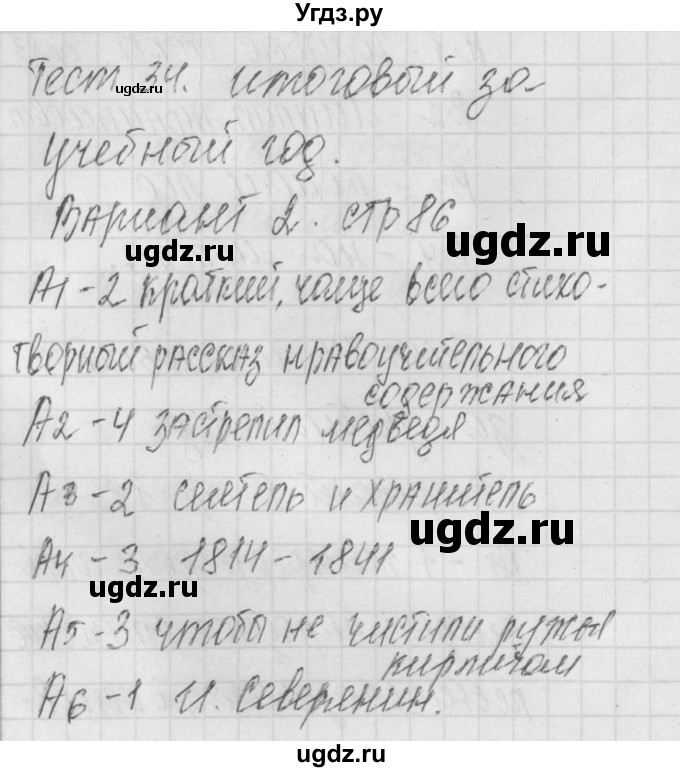 Угдз.ру
Тест 34. итоговый за
ugdz.ru
учебный год.
Вариант 2. стр 86
ugdz.ru
ugdz.ru
А1-2 краткий, чаще всего стихо-
творный рассказ нравоучительного
содержания
А2-4 застрелил медведя
А3-2 сеятель и хранитель
ugdz.ru
А4-3 1814-1841
ugdz.ru
А5-3 чтобы не чистили ружья
кирпичом
А6-1 И. Северянин.
ugdz.ru